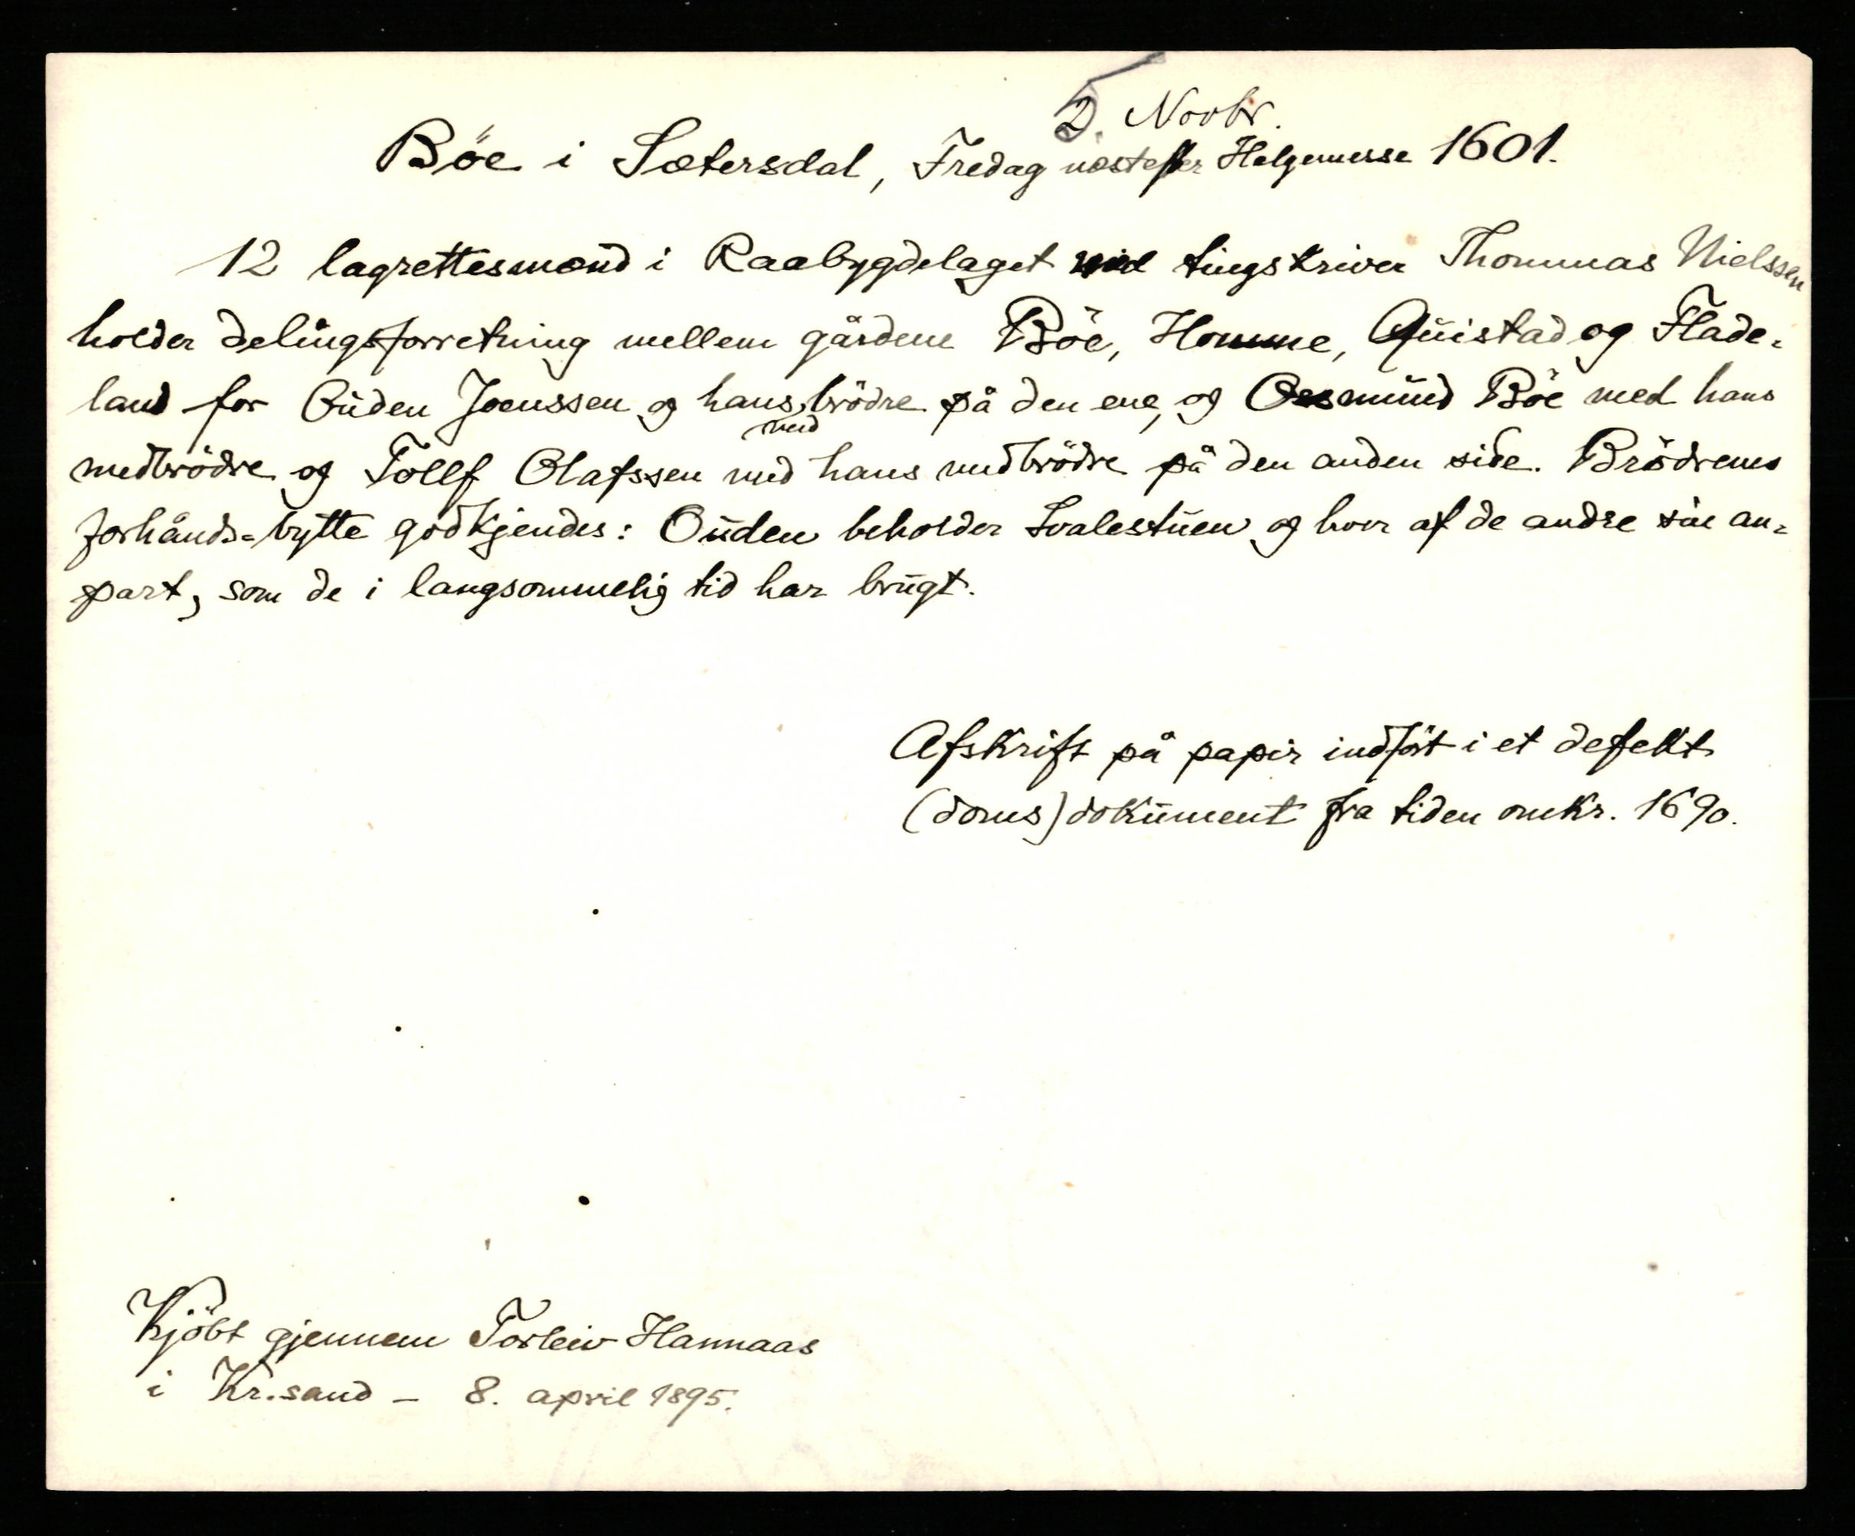 5. Novbr.
Böe i Sætersdal, Fredag næstefter Helgemesse 1601.
12 lagrettesmænd i Raabygdelaget med tingskriver Thommas Nielssen
holder delingsforretning mellem gårdene Böe, Homme, Quistad og Flade-
land for Ouden Joenssen og hans medbrödre på den ene, og Oesmund Böe med hans
medbrödre og Tollf Olafssen med hans medbrödre på den anden side. Brödrenes
forhånds-bytte godkjendes: Ouden beholder Svalestuen og hver af de andre sin an-
part, som de i langsommelig tid har brugt.
Afskrift på papir indfört i et defekt
(doms)dokument fra tiden omkr. 1690.
Kjöbt gjennem Torleiv Hannaas
i Kr.sand - 8. april 1895.